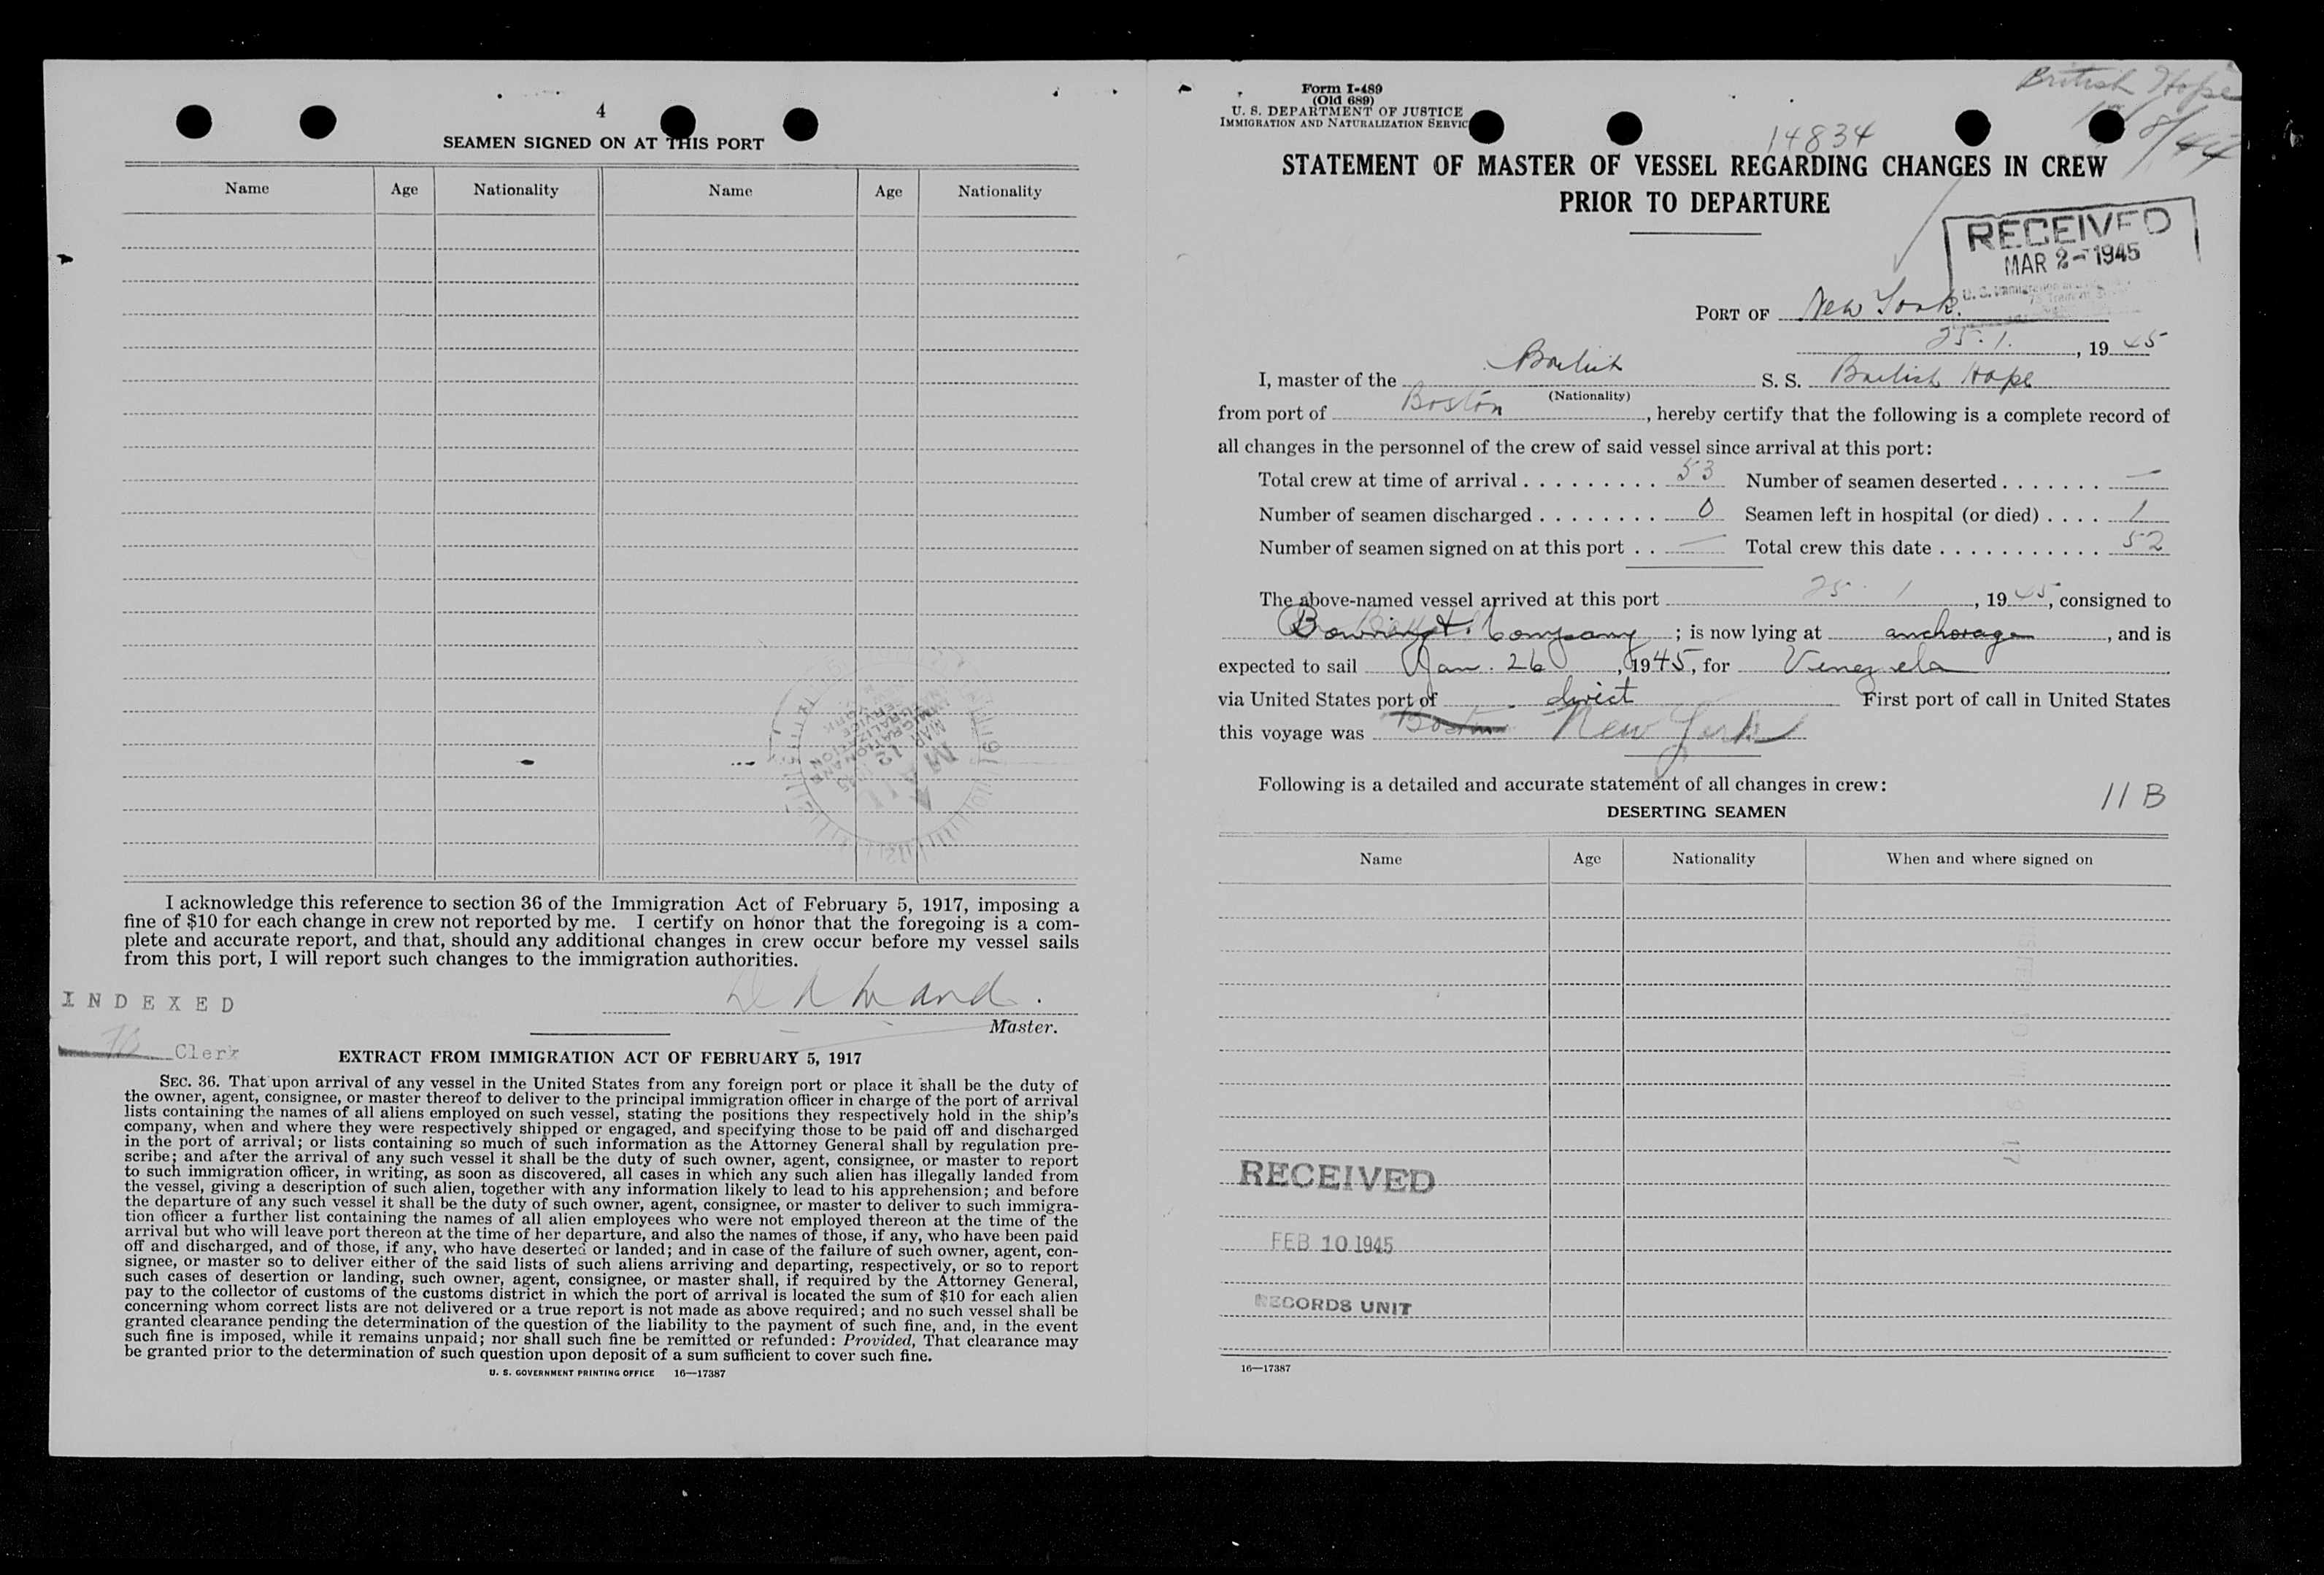 4
SEAMEN SIGNED ON AT THIS PORT
Name Age Nationality Name Age Nationality
I acknowledge this reference to section 36 of the Immigration Act of February 5, 1917, imposing a
fine of $10 for each change in crew not reported by me. I certify on honor that the foregoing is a com-
plete and accurate report, and that, should any additional changes in crew occur before my vessel sails
from this port, I will report such changes to the immigration authorities.
INDEXED
Master.
Clerk
EXTRACT FROM IMMIGRATION ACT OF FEBRUARY 5, 1917
SEC. 36. That upon arrival of any vessel in the United States from any foreign port or place it shall be the duty of
the owner, agent, consignee, or master thereof to deliver to the principal immigration officer in charge of the port of arrival
lists containing the names of all aliens employed on such vessel, stating the positions they respectively hold in the ship's
company, when and where they were respectively shipped or engaged, and specifying those to be paid off and discharged
in the port of arrival; or lists containing so much of such information as the Attorney General shall by regulation pre-
scribe; and after the arrival of any such vessel it shall be the duty of such owner, agent, consignee, or master to report
to such immigration officer, in writing, as soon as discovered, all cases in which any such alien has illegally landed from
the vessel, giving a description of such alien, together with any information likely to lead to his apprehension; and before
the departure of any such vessel it shall be the duty of such owner, agent, consignee, or master to deliver to such immigra-
tion officer a further list containing the names of all alien employees who were not employed thereon at the time of the
arrival but who will leave port thereon at the time of her departure, and also the names of those, if any, who have been paid
off and discharged, and of those, if any, who have deserted or landed; and in case of the failure of such owner, agent, con-
signee, or master so to deliver either of the said lists of such aliens arriving and departing, respectively, or so to report
such cases of desertion or landing, such owner, agent, consignee, or master shall, if required by the Attorney General,
pay to the collector of customs of the customs district in which the port of arrival is located the sum of $10 for each alien
concerning whom correct lists are not delivered or a true report is not made as above required; and no such vessel shall be
granted clearance pending the determination of the question of the liability to the payment of such fine, and, in the event
such fine is imposed, while it remains unpaid; nor shall such fine be remitted or refunded: Provided, That clearance may
be granted prior to the determination of such question upon deposit of a sum sufficient to cover such fine.
U. S. GOVERNMENT PRINTING OFFICE 16—17387
British Hope
Form I-489
(Old 689)
U. S. DEPARTMENT OF JUSTICE
IMMIGRATION AND NATURALIZATION SERVIC
14834
STATEMENT OF MASTER OF VESSEL REGARDING CHANGES IN CREW
PRIOR TO DEPARTURE
RECEIVED
MAR 2-1945
PORT OF New York.
25.1., 19 45
I, master of the British S. S. British Hope
(Nationality)
from port of Boston, hereby certify that the following is a complete record of
all changes in the personnel of the crew of said vessel since arrival at this port:
Total crew at time of arrival 53 Number of seamen deserted —
Number of seamen discharged 0 Seamen left in hospital (or died) 1
Number of seamen signed on at this port — Total crew this date 52
The above-named vessel arrived at this port 25 1, 19 45, consigned to
Bowring & Company; is now lying at anchorage, and is
expected to sail Jan. 26, 1945, for Venezuela
via United States port of direct First port of call in United States
this voyage was Boston New York
Following is a detailed and accurate statement of all changes in crew:
11 B
DESERTING SEAMEN
Name Age Nationality When and where signed on
RECEIVED
FEB 10 1945
RECORDS UNIT
16—17387